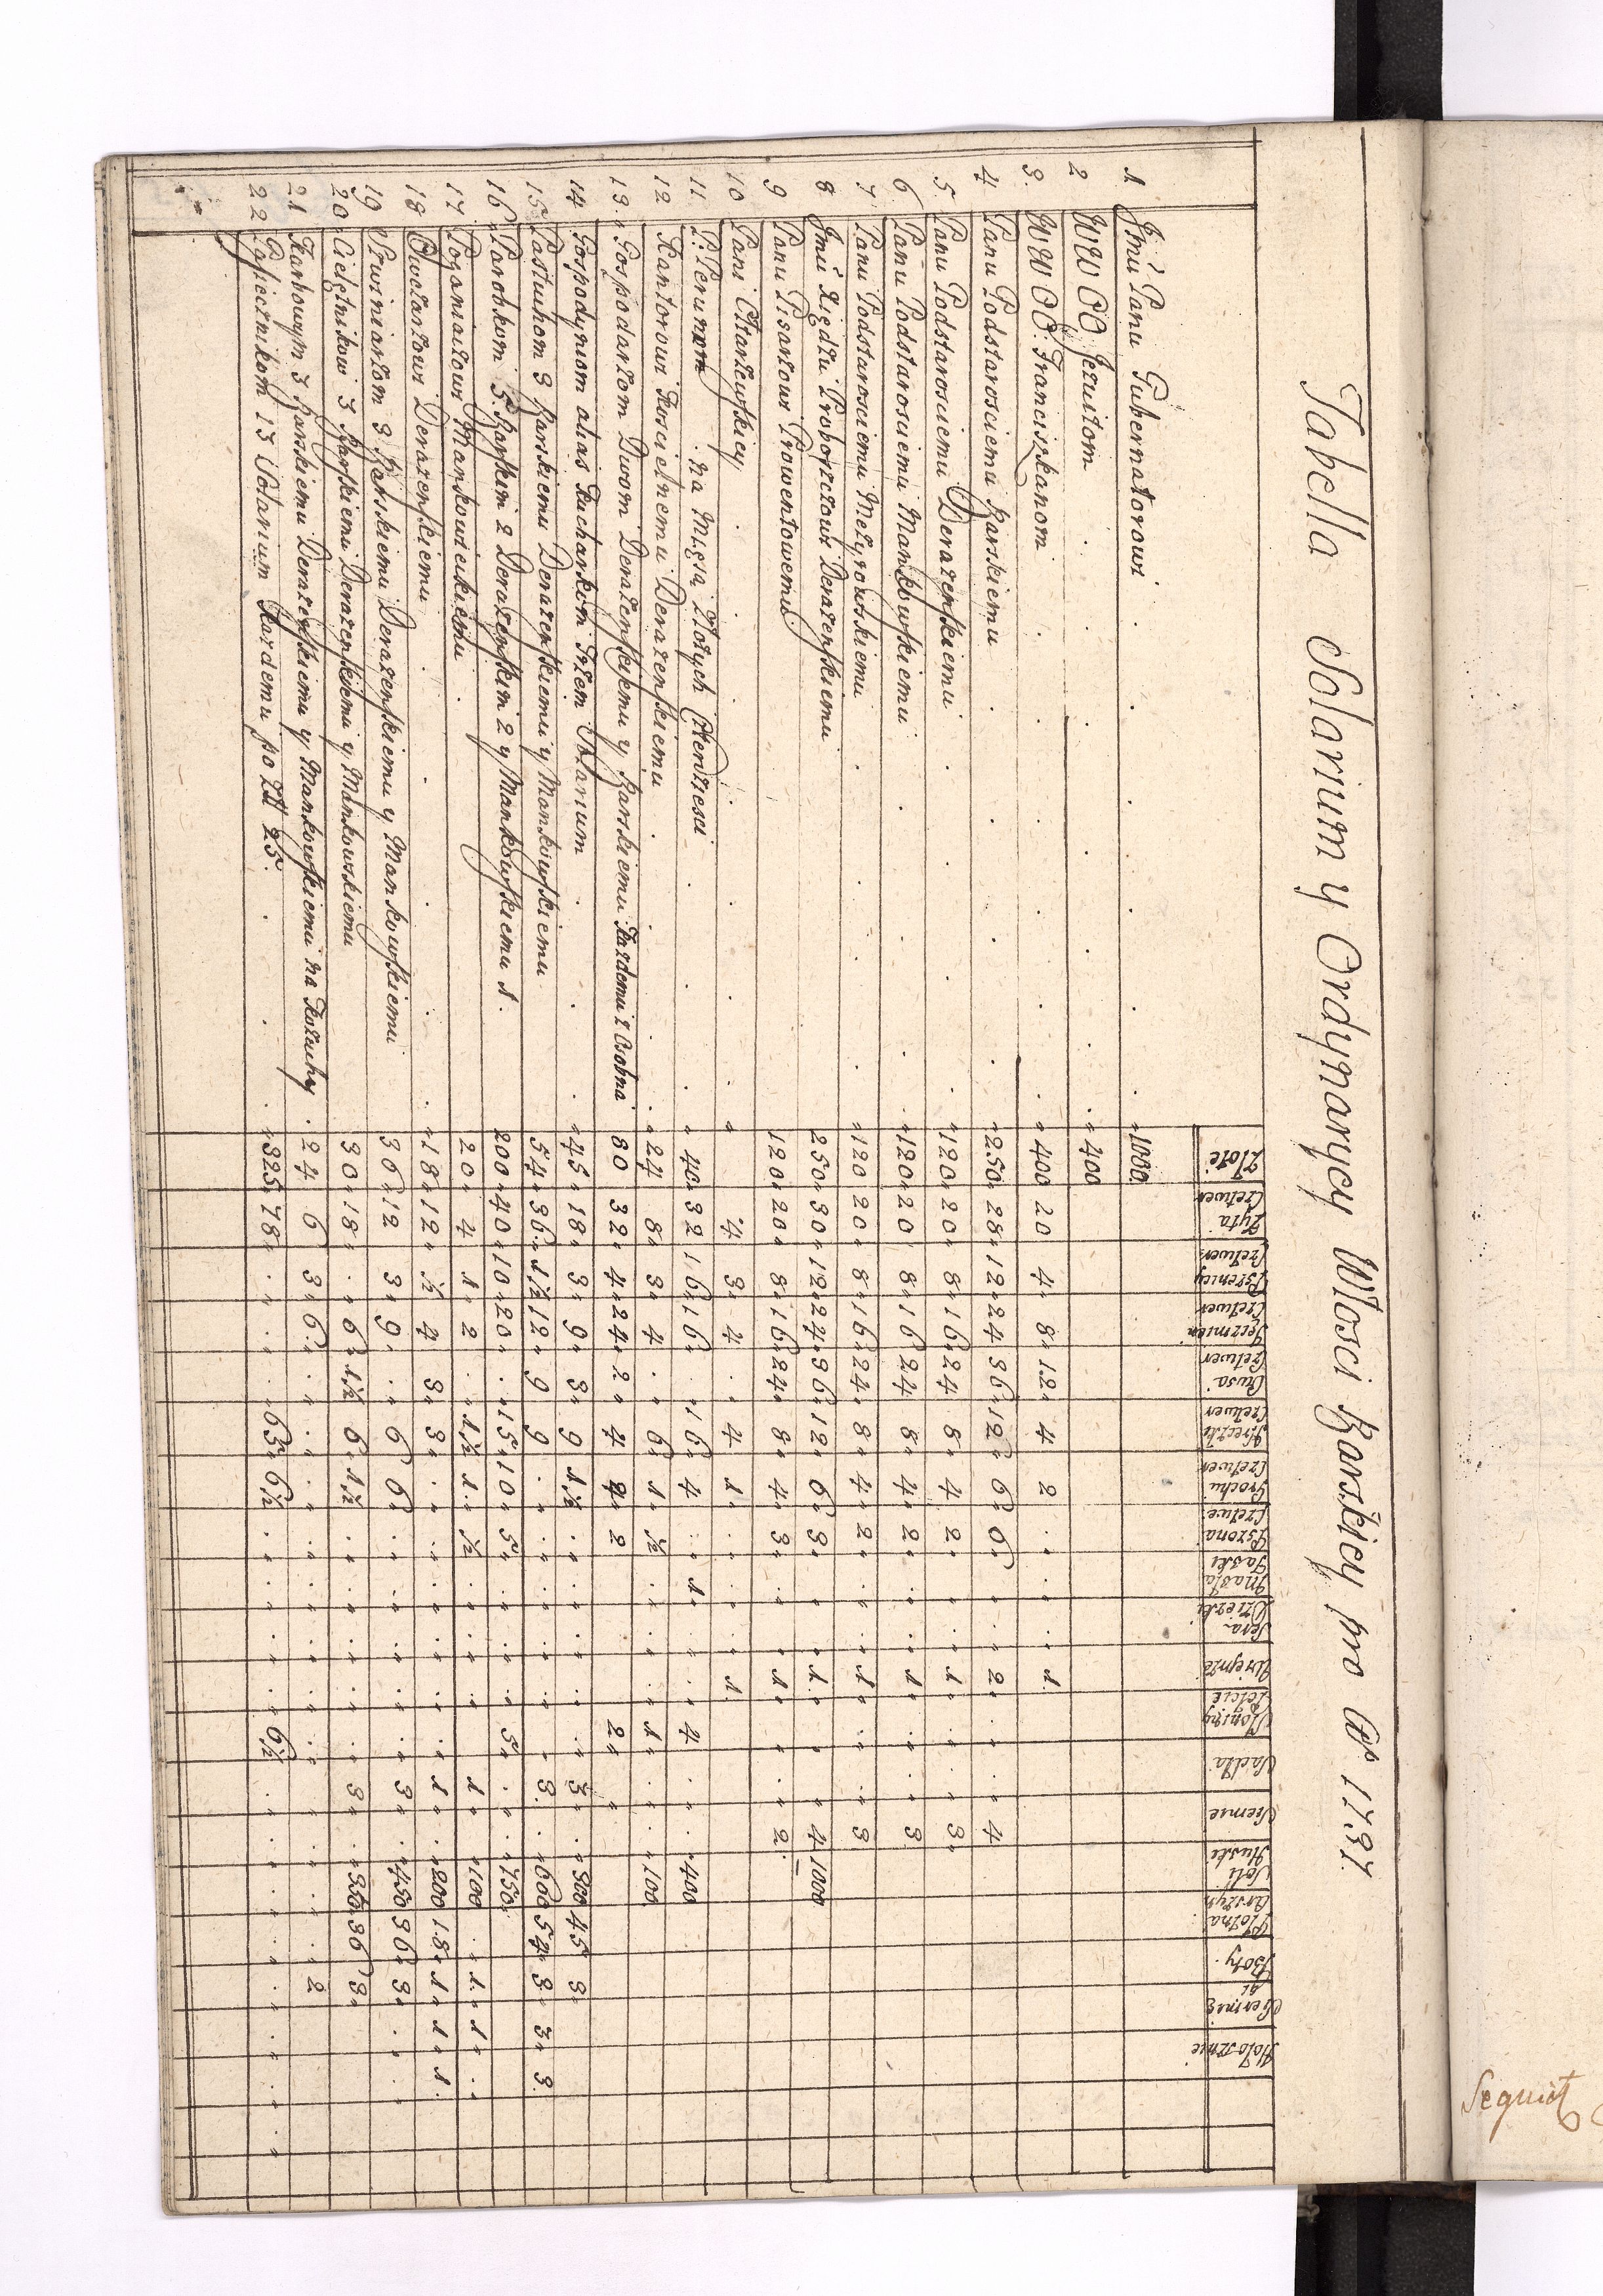 Tabella Solarium y Ordynaryey Włosci Barskiey pro Ao 1737
Złote
Zyta Czetwer
Pszenicy Czetwer
Jęczmien Czetwer
Owsa Czetwer
Hreczki Czetwer
Grochu Czetwer
Pszona Czetwe:
Masła Faski
Sera Dzieżki
Wieprze
Słoniny Połcie
Sadła
Siemie
Soli Huski
Płotna Arszyn
Boty
Siermię gi
Hołosznie
1 Jmu Panu Gubernatorowi 1000
2 WW OO Jezuitom 400
3. WW OO. Franciszkanom 400 20 4 8 12 4 2 1
4 Panu Podstarosciemu Barskiemu 250 28 12 24 36 12 6 6 2 4
5 Panu Podstarosciemu Derazenskiemu 120 20 8 16 24 8 4 2 1 3
6. Panu Podstarosciemu Mankowskiemu 120 20 8 16 24 8 4 2 1 3
7 Panu Podstarosciemu Mezyrowskiemu 120 20 8 16 24 8 4 2 1 3
8 Jmu Xiędzu Proboszczowi Derazenskiemu 250 30 12 24 36 12 6 3 1 4 1000
9 Panu Pisarzowi Prowentowemu 120 20 8 16 24 8 4 3 1 2
10 Pani 4 3 4 4 1 1
11 P: na Męsa Złotych 40 32 16 16 16 4 1 4 400
12 Kantorowi Koscielnemu Derazenskiemu 24 8 3 4 6 1 ½ 1 100
13. Gospodarzom Dwom Derazenskiemu y Barskiemu Kazdemu z Osobna 80 32 4 24 2 4 2 2 2
14 Gospodyniom alias Kucharkom Trzem Solarium 45 18 3 9 3 9 1½ 3 300 45 3
15 Pastuhom 3 Barskiemu Derazenskiemu y Mankowskiemu 54 36 1½ 12 9 9 3 600 54 3 3 3
16 Parobkom 5. Barskim 2 Derazenskim 2 y Mankowskiemu 1. 200 40 10 20 15 10 5 5 750
17 Poganiaczowi Mankowieckiemu 20 4 1 2 1½ 1 ½ 1 100 1 1
18 Owczarzowi Derazenskiemu 18 12 ½ 4 3 3 1 200 18 1 1 1
19 Swiniarzom 3 Barskiemu Derazenskiemu y Mankowskiemu 36 12 3 9 6 6 3 450 36 3
20 Cielętnikow 3 Barskiemu Derazenskiemu y Mankowskiemu 30 18 6 1½ 6 1½ 3 350 36 3
21 Karbowym 3 Barskiemu Derazenskiemu y Mankowskiemu na Kożuhy 24 6 3 6 2
22 Pasiecznikom 13 Solarium Kazdemu po Zł 25. 325 78 65 6½ 6½
Sequit